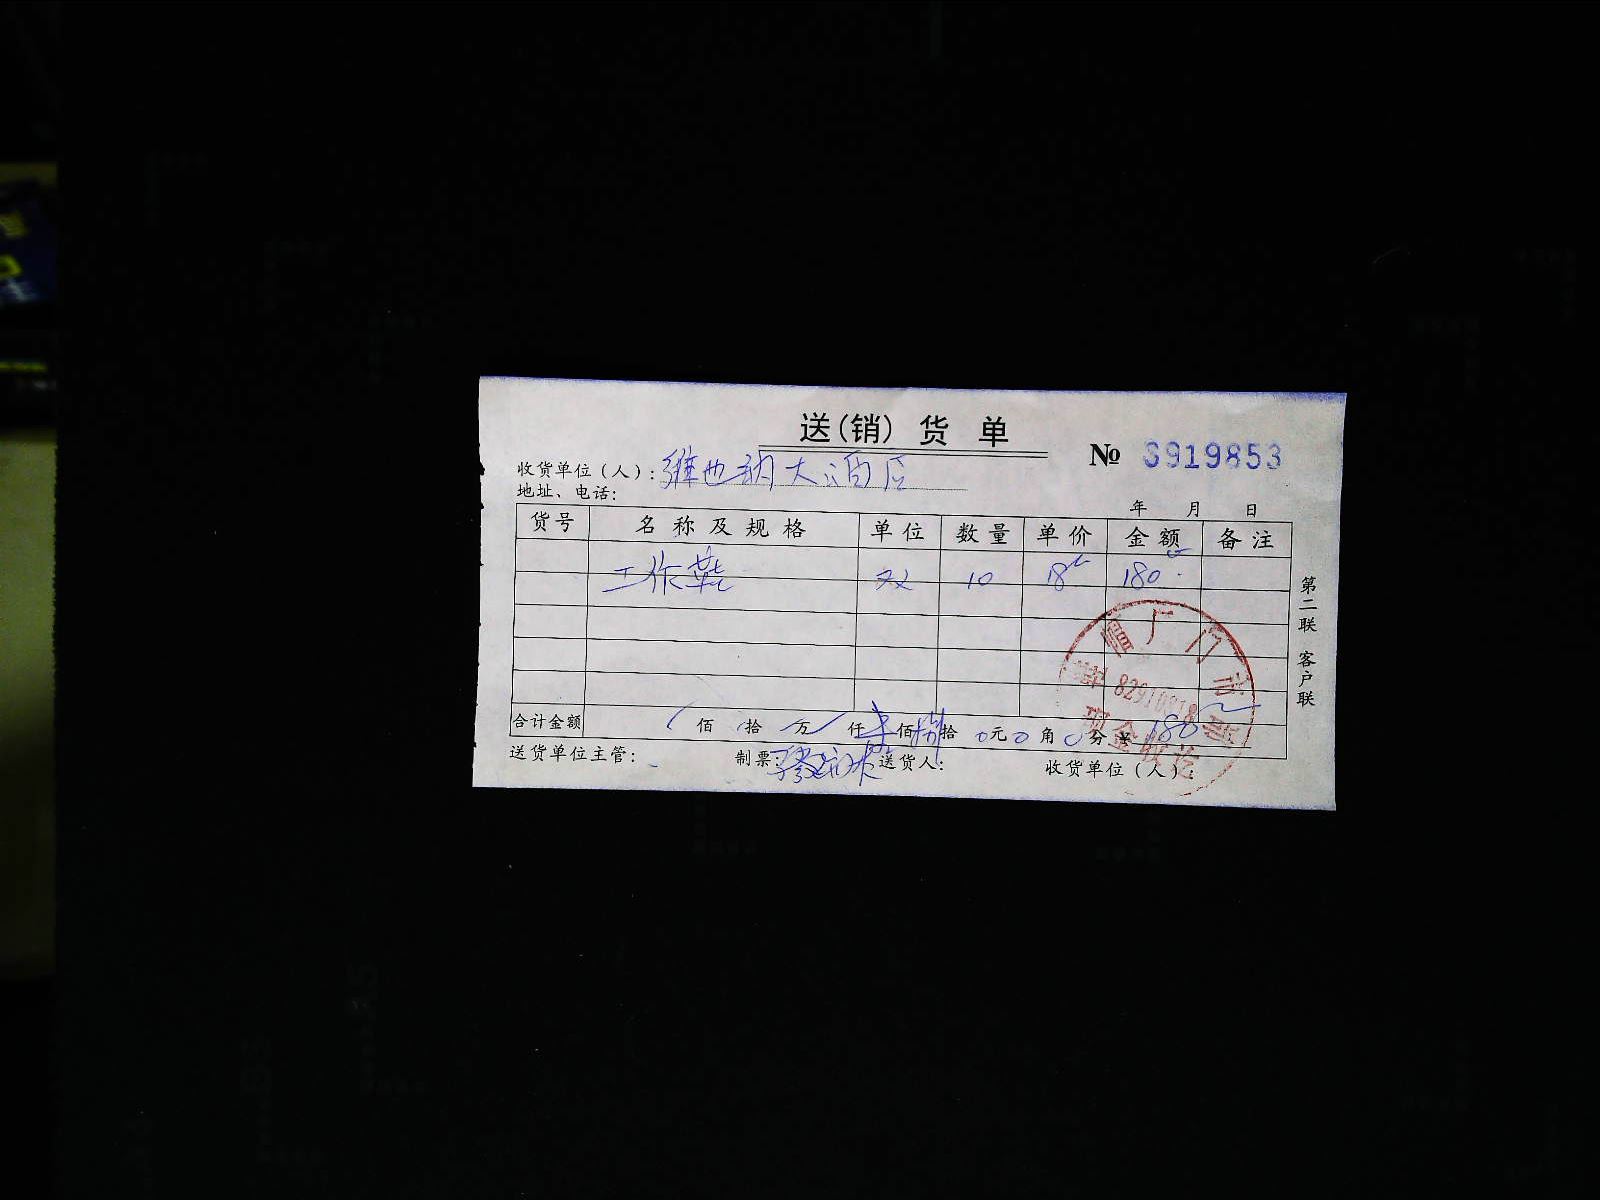 送(销)货单
№ S919853
收货单位(人): 维也纳大酒店
地址、电话:
年 月 日
货号 名称及规格 单位 数量 单价 金额 备注
工作鞋 双 10 18 180
合计金额 佰 拾 万 仟 壹佰 捌拾 0元 0角 0分 ¥ 180
送货单位主管: 制票: 送货人: 收货单位(人):
第二联 客户联
厦门市
现金收讫